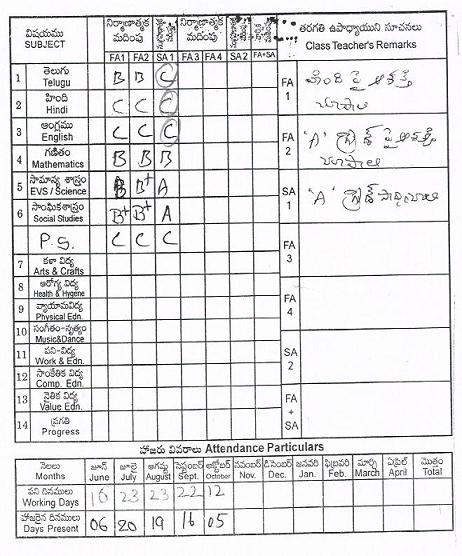 విషయము నిర్మాణాత్మక మదింపు నిర్మాణాత్మక మదింపు తరగతి ఉపాధ్యాయుని సూచనలు
SUBJECT FA1 FA2 SA1 FA3 FA4 SA2 FA+SA Class Teacher's Remarks
1 తెలుగు Telugu B B C
2 హింది Hindi C C C
3 ఆంగ్లము English C C C
4 గణితం Mathematics B B B
5 సామాన్య శాస్త్రం EVS / Science B B+ A
6 సాంఘికశాస్త్రం Social Studies B+ B+ A
P.S. C C C
7 కళా విద్య Arts & Crafts
8 ఆరోగ్య విద్య Health & Hygene
9 వ్యాయామవిద్య Physical Edn.
10 సంగీతం-నృత్యం Music&Dance
11 పని-విద్య Work & Edn.
12 సాంకేతిక విద్య Comp. Edn.
13 నైతిక విద్య Value Edn.
14 ప్రగతి Progress
FA 1 హింది పై ఆసక్తి చూపాలి
FA 2 'A' గ్రేడ్ పై ఆసక్తి చూపాలి
SA 1 'A' గ్రేడ్ సాధించాలి
FA 3
FA 4
SA 2
FA + SA
హాజరు వివరాలు Attendance Particulars
నెలలు జూన్ జూలై ఆగష్టు సెప్టెంబర్ అక్టోబర్ నవంబర్ డిసెంబర్ జనవరి ఫిబ్రవరి మార్చి ఏప్రిల్ మొత్తం
Months June July August September October Nov. Dec. Jan. Feb. March April Total
పని దినములు
Working Days 16 23 23 22 12
హాజరైన దినములు
Days Present 06 20 19 16 05